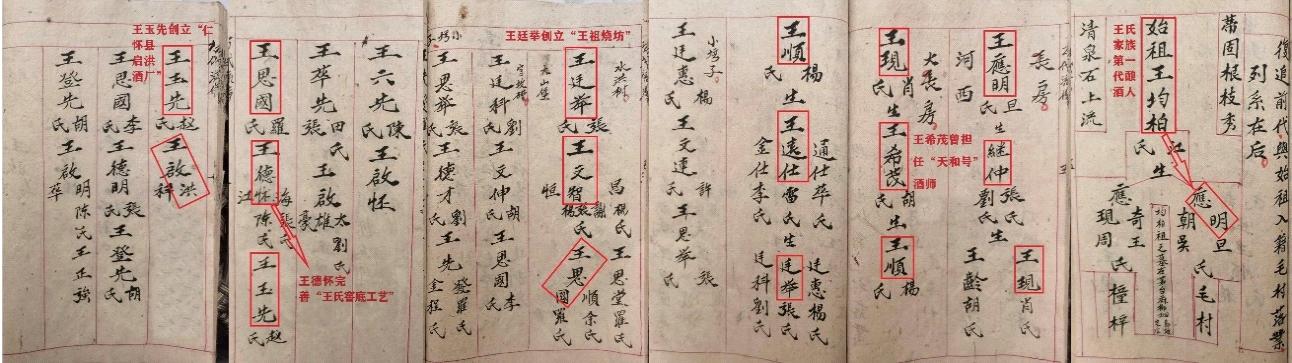 復追前代與始祖入籍毛村落業
列系在后
蒂固根枝秀
始祖王均柏江氏生
應明旦氏毛村
朝吳
奇王
應現周氏
清泉石上流
王氏家族第一代酿酒人
長房
王應明旦氏生
継仲張氏劉氏生
王現肖氏
王齡胡氏
河西
大長房
王現肖氏生
王希茂胡氏生
王順楊氏
王希茂曾担任“天和号”酒师
王順楊氏生
王遠仕雷氏生
通仕卒氏
金仕李氏
廷舉張氏
廷惠楊氏
廷科劉氏
小塆子
王廷惠楊氏
王文連許氏
王思舉張氏
王廷举创立“王祖烧坊”
水洪樹
王廷舉張氏
王文智謝張楊氏
昌楊氏
恒
王思堂羅氏
順余氏
王思國羅氏
王廷科劉氏
王文伸胡氏
王思國李氏
王思舉張氏
王德才劉氏
王先發羅氏
金程氏
王六先陳氏
王啟怀
王萃先田氏張氏
王啟雄
太劉氏
豪
王思國羅氏
王德怀陳氏
海張氏
江
王玉先趙氏
王德怀完善“王氏窖底工艺”
王玉先创立“仁怀县启洪酒厂”
王玉先趙氏
王啟洪
科
王思國李氏
王德明張氏
王登先胡氏
王登先胡氏
王啟明陳氏
王正強